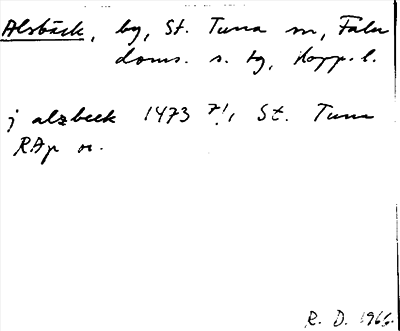 Alsbäck, by, St. Tuna sn, Falu
doms. s. tg, Kopp. l.
j alzbeek 1473 7/1, St. Tuna
RAp or.
R. D. 1966.